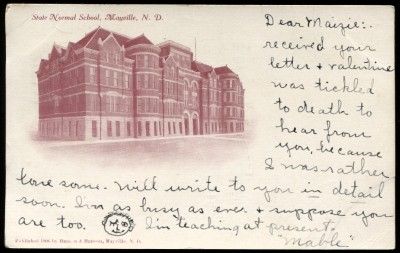 State Normal School, Mayville, N. D.
Dear Maizie:.
received your
letter + valentine
was tickled
to death to
hear from
you, because
I was rather
lone some. Will write to you in detail
soon. I'm as busy as ever + suppose you
are too. I'm teaching at present.
Mable
Published 1906 by & Mayville, N. D.